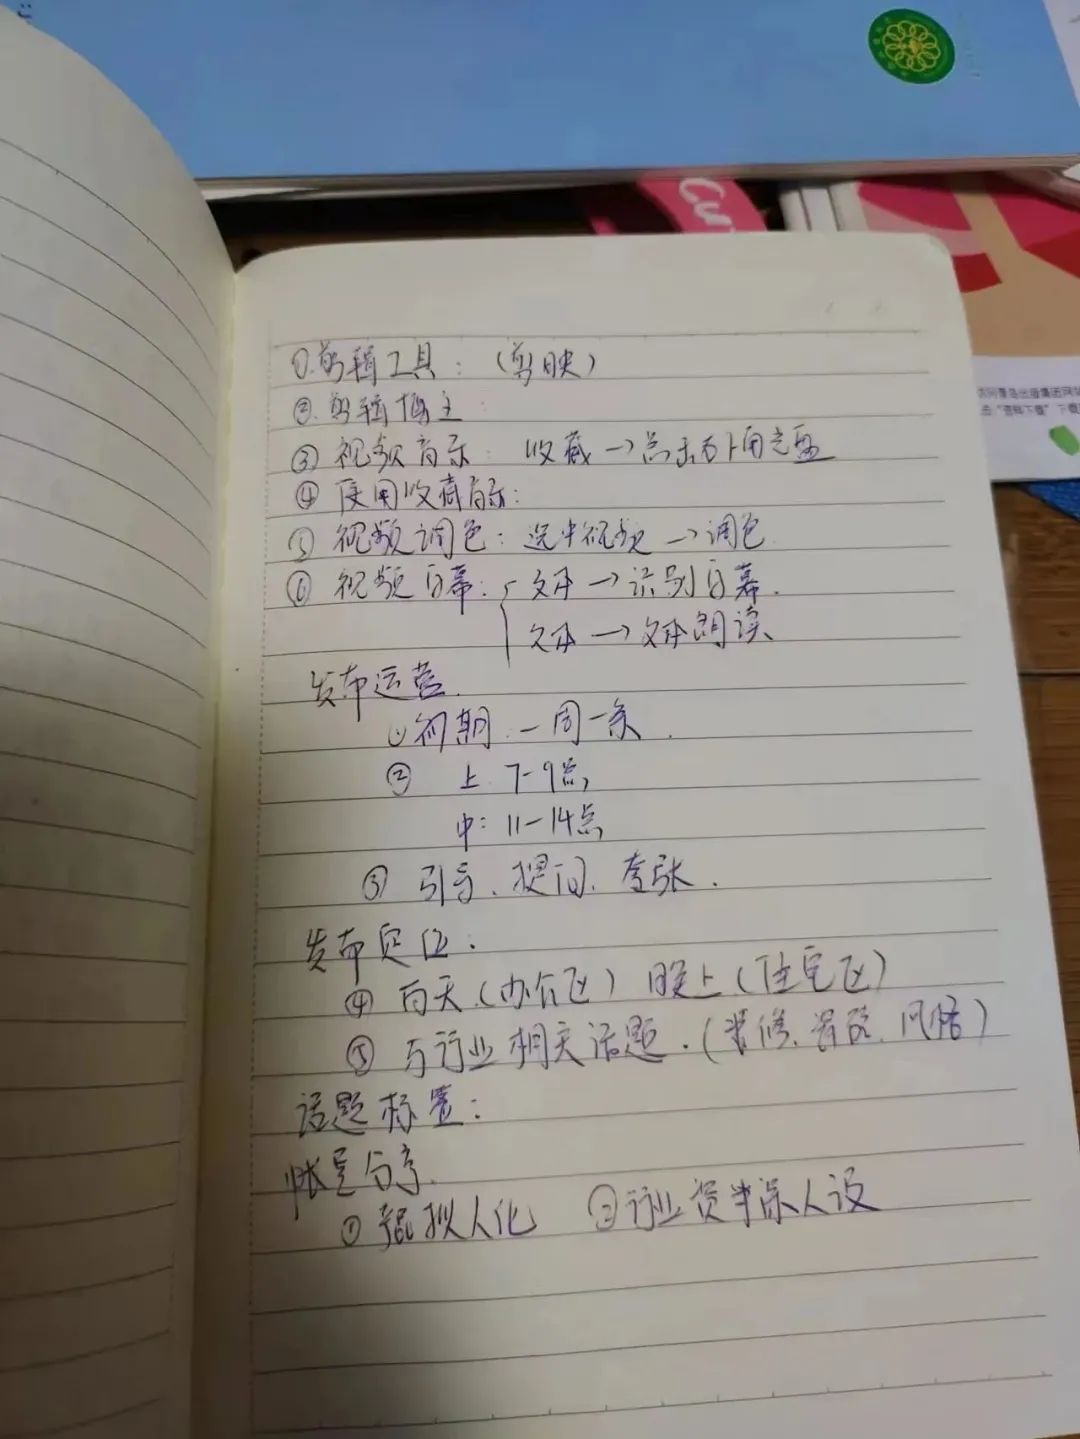 Cu
①.剪辑工具：（剪映）
②.剪辑博主：
③ 视频音乐：收藏→点击右下角完盘
④ 使用收藏音乐：
⑤ 视频调色：选中视频→调色.
⑥ 视频字幕：文本→识别字幕.
文本→文本朗读
发布运营.
① 初期：一周一条.
② 上 7-9点,
中：11-14点
③ 引导、提问、夸张.
发布定位：
④ 白天（办公区）晚上（住宅区）
⑤ 与行业相关话题.（装修、 风格）
话题标置：
帐号分享.
① 拟人化 ② 行业资 人设
击“资料下载”下载